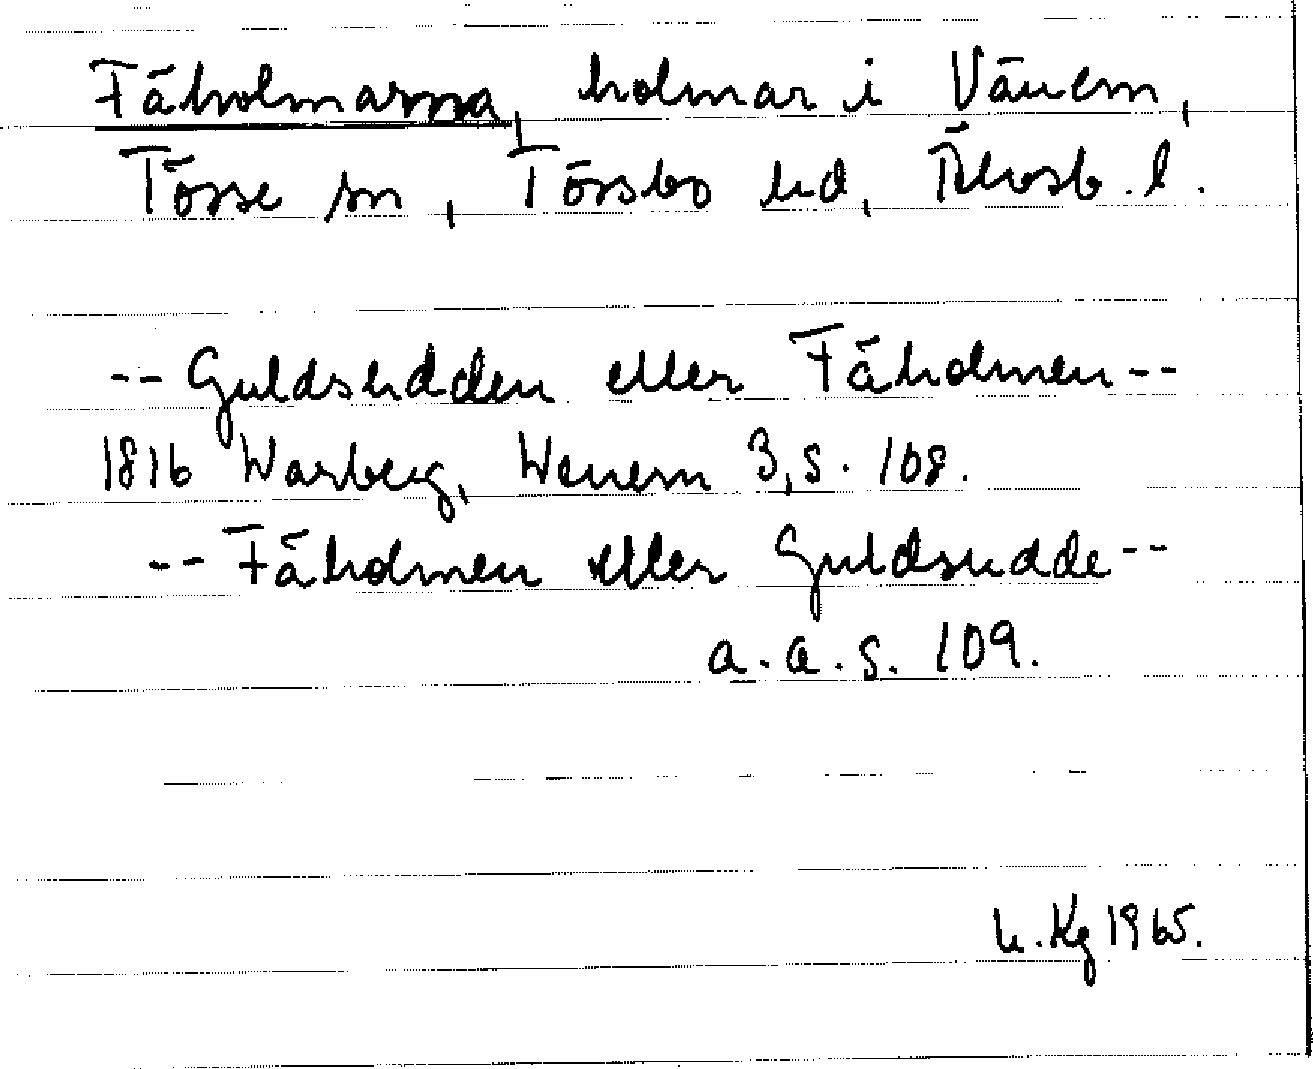 Fäholmarna, holmar i Vänern,
Tösse sn, Tössbo hd, Älvsb. l.
-- Guldsudden eller Fäholmen --
1816 Warberg, Wenern 3, s. 108.
-- Fäholmen eller Guldsudde --
a.a.s. 109.
Kg 1965.